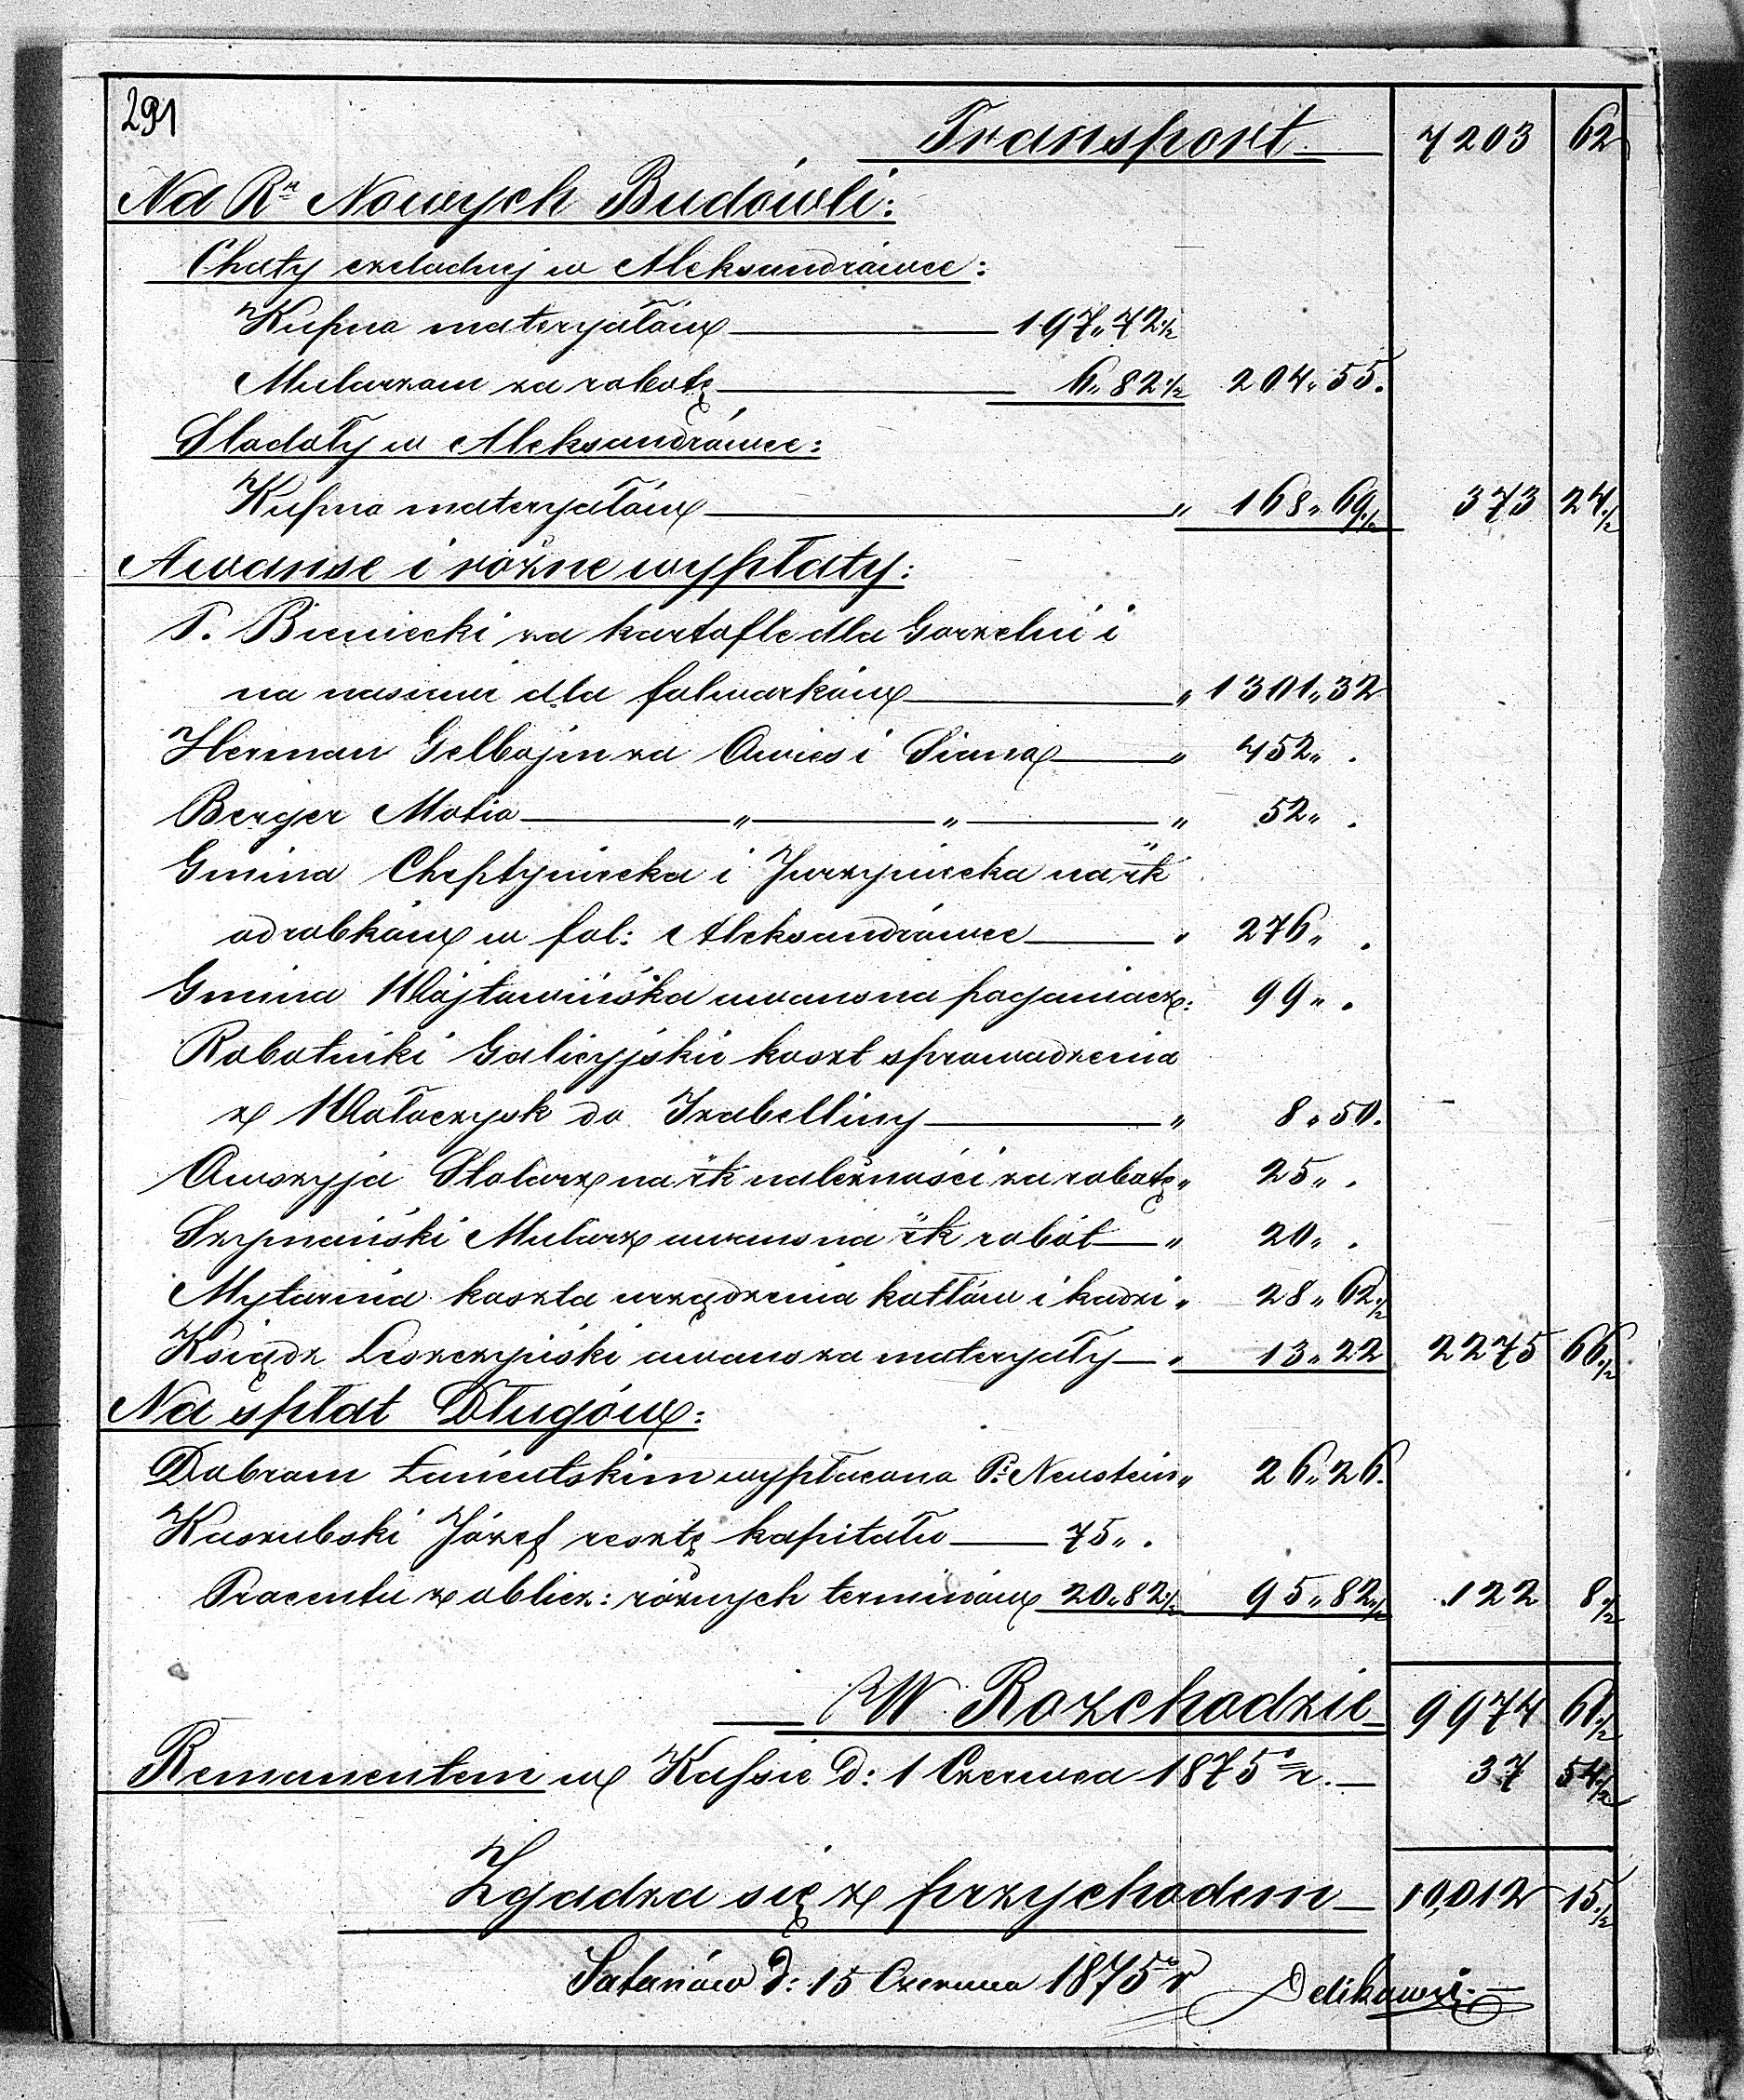 291
Transport 7203 62
Na Rn Nowych Budówli:
Chaty czeladnej w Aleksandrówce:
Kupno materyałów 197„72½
Mularzom za robotę 6„82½ 204„55.
Stodoły w Aleksandrówce:
Kupno materyałów „ 168„69½ 373 24½
Awanse i rożne wypłaty:
P. Bieniecki za kartofle dla Gorzelni i
na nasienie dla folwarków „ 1301„32
Herman Gelbojm za Owies i Siano „ 452„ .
Berger Motio „ „ „ 52„ .
Gmina Cheptyniecka i Jurzyniecka na rk
odrobków w fol: Aleksandrówce „ 276„ .
Gmina Wójtowińska awans na poganiacz: 99„ .
Robotniki Galicyjskie koszt sprowadzenia
z Wołoczysk do Izabelliny „ 8„50.
Owszyja Stolarz na rk należności za robotę „ 25„ .
Szymański Mularz awans na rk robót „ 20„ .
Mytarnia koszta urządzenia kotłów i kadzi „ 28„62½
Ksiądz Leszczyński awans za materyały „ 13„22 2275 66½
Na spłat Długów:
Dobrom Łanieutskim wypłacono P: Neustein „ 26„26.
Kaszubski Józef resztę kapitału 75„ .
Procentu z oblicz: różnych terminów 20„82½ 95„82½ 122 8½
W Rozchodzie 9974 61½
Remanentem w Kassie D: 1 Czerwca 1875 r. 37 54½
Zgadza się z przychodem 10,012 15½
Satanów d: 15 Czerwca 1875 r